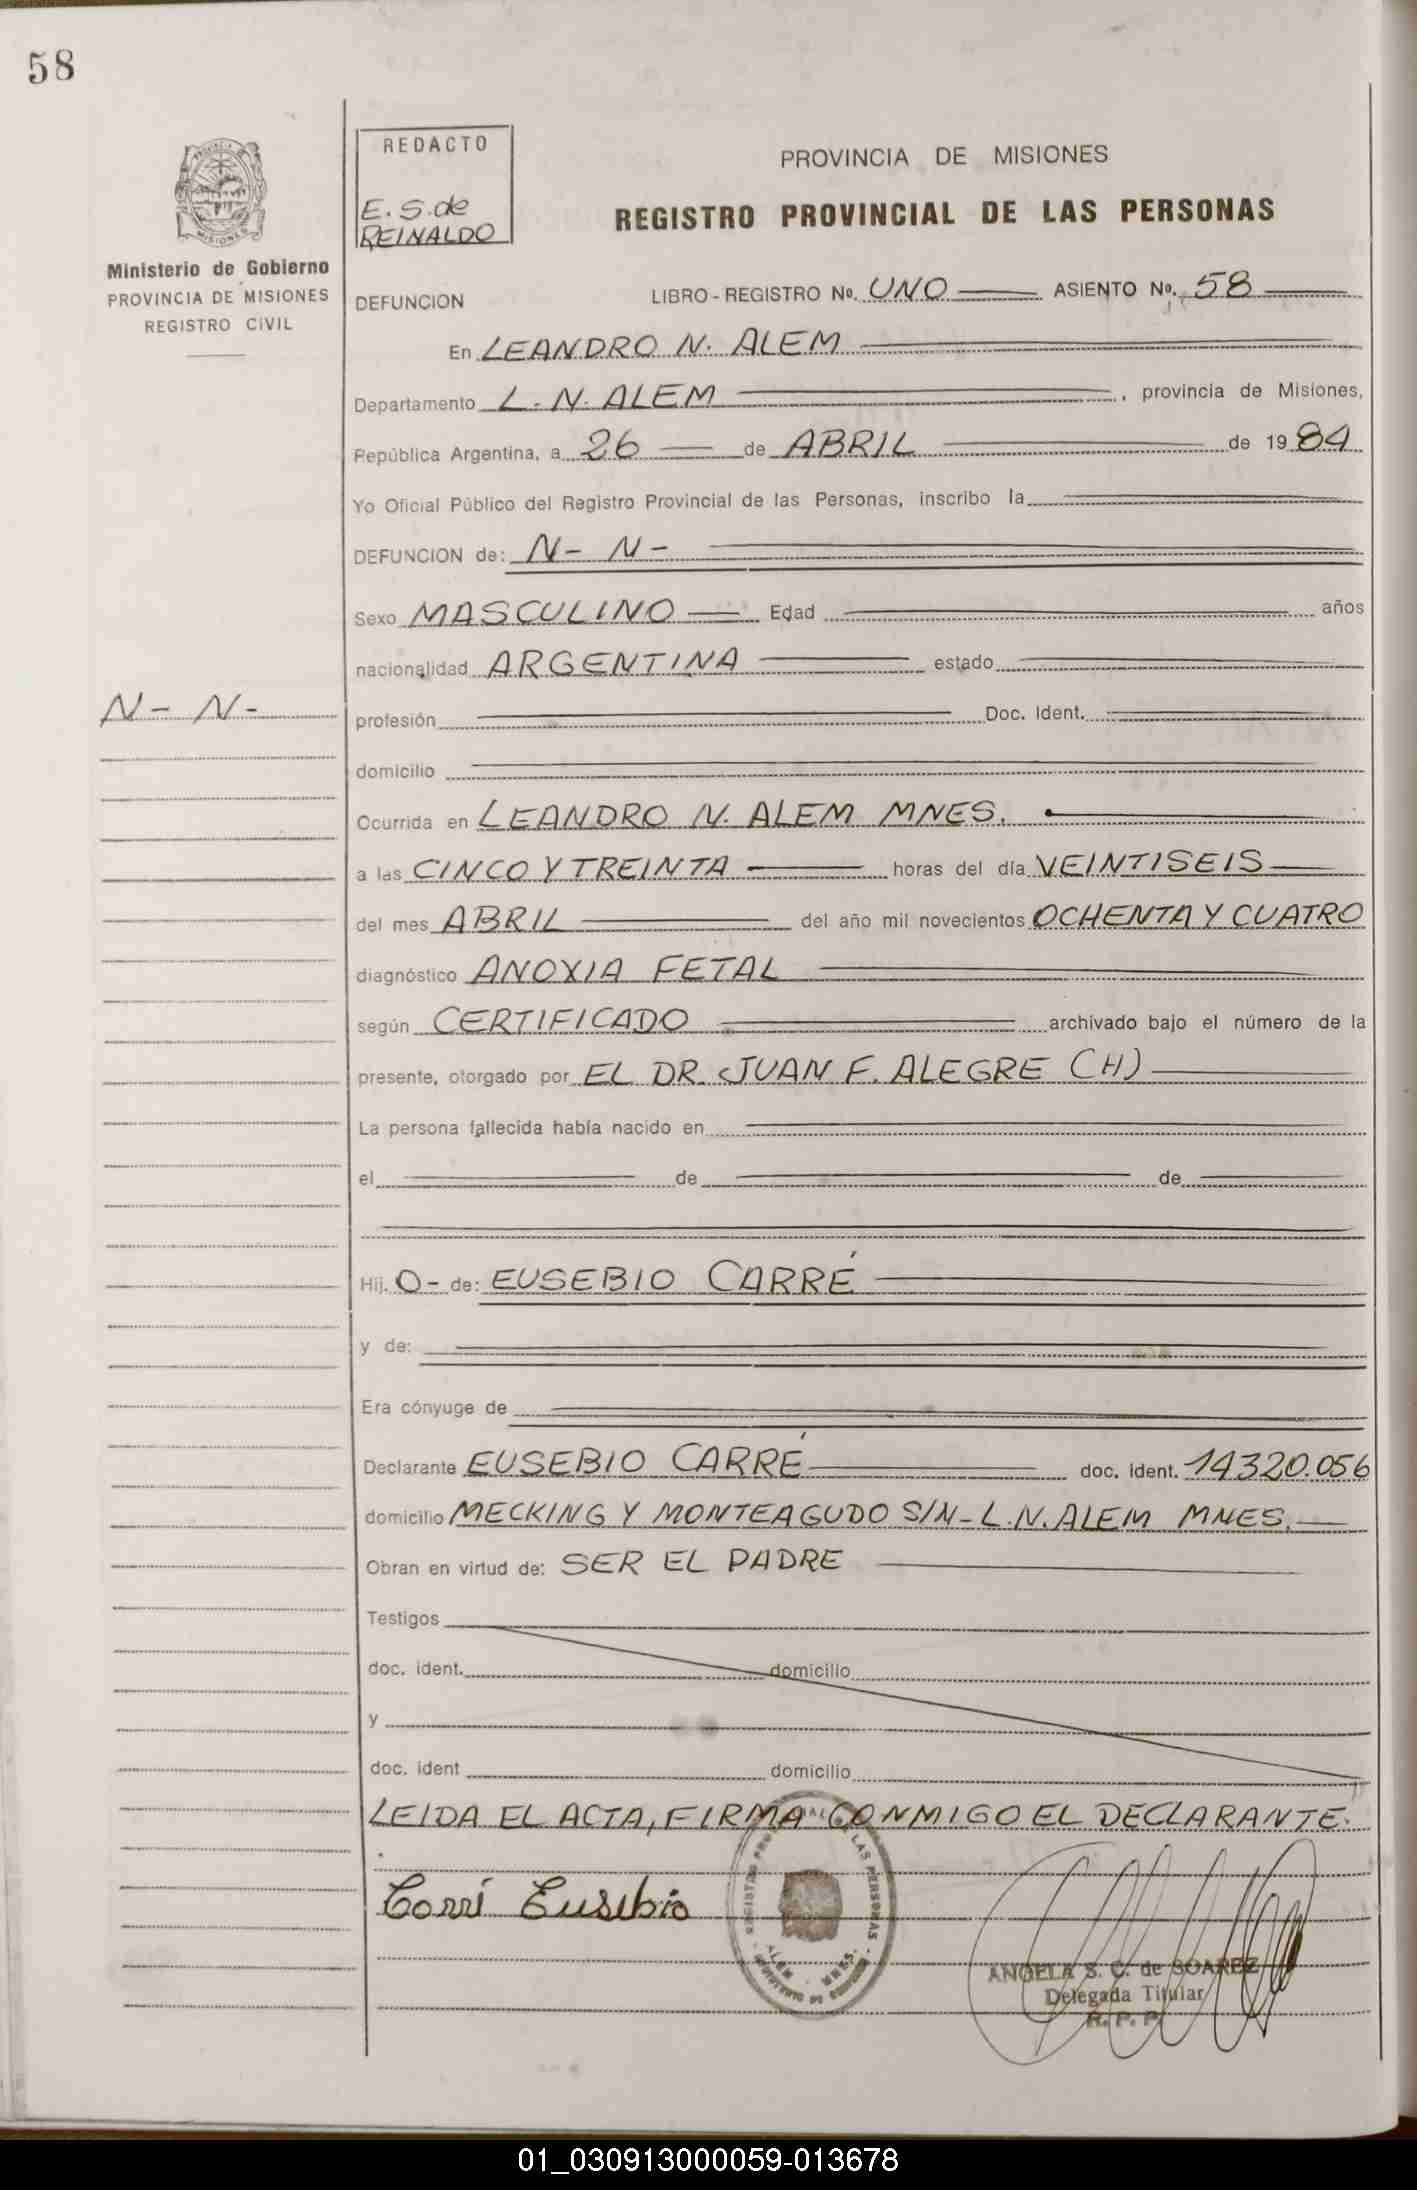 58
REDACTO
E. S. de
REINALDO
PROVINCIA DE MISIONES
REGISTRO PROVINCIAL DE LAS PERSONAS
Ministerio de Gobierno
PROVINCIA DE MISIONES
REGISTRO CIVIL
DEFUNCION LIBRO - REGISTRO Nº. UNO ASIENTO Nº. 58
En LEANDRO N. ALEM
Departamento L. N. ALEM, provincia de Misiones,
República Argentina, a 26 de ABRIL de 1984
Yo Oficial Público del Registro Provincial de las Personas, inscribo la
DEFUNCION de: N- N-
Sexo MASCULINO Edad años
nacionalidad ARGENTINA estado
N- N-
profesión Doc. Ident.
domicilio
Ocurrida en LEANDRO N. ALEM MNES.
a las CINCO Y TREINTA horas del día VEINTISEIS
del mes ABRIL del año mil novecientos OCHENTA Y CUATRO
diagnóstico ANOXIA FETAL
según CERTIFICADO archivado bajo el número de la
presente, otorgado por EL DR. JUAN F. ALEGRE (H)
La persona fallecida había nacido en
el de de
Hij. O- de: EUSEBIO CARRÉ
y de:
Era cónyuge de
Declarante EUSEBIO CARRÉ doc. ident. 14320.056
domicilio MECKING Y MONTEAGUDO S/N - L. N. ALEM MNES.
Obran en virtud de: SER EL PADRE
Testigos
doc. ident. domicilio
y
doc. ident domicilio
LEIDA EL ACTA, FIRMA CONMIGO EL DECLARANTE.
Corrí Eusebio
ANGELA S. C. de SOAREZ
Delegada Titular
R. P. P.
01_030913000059-013678